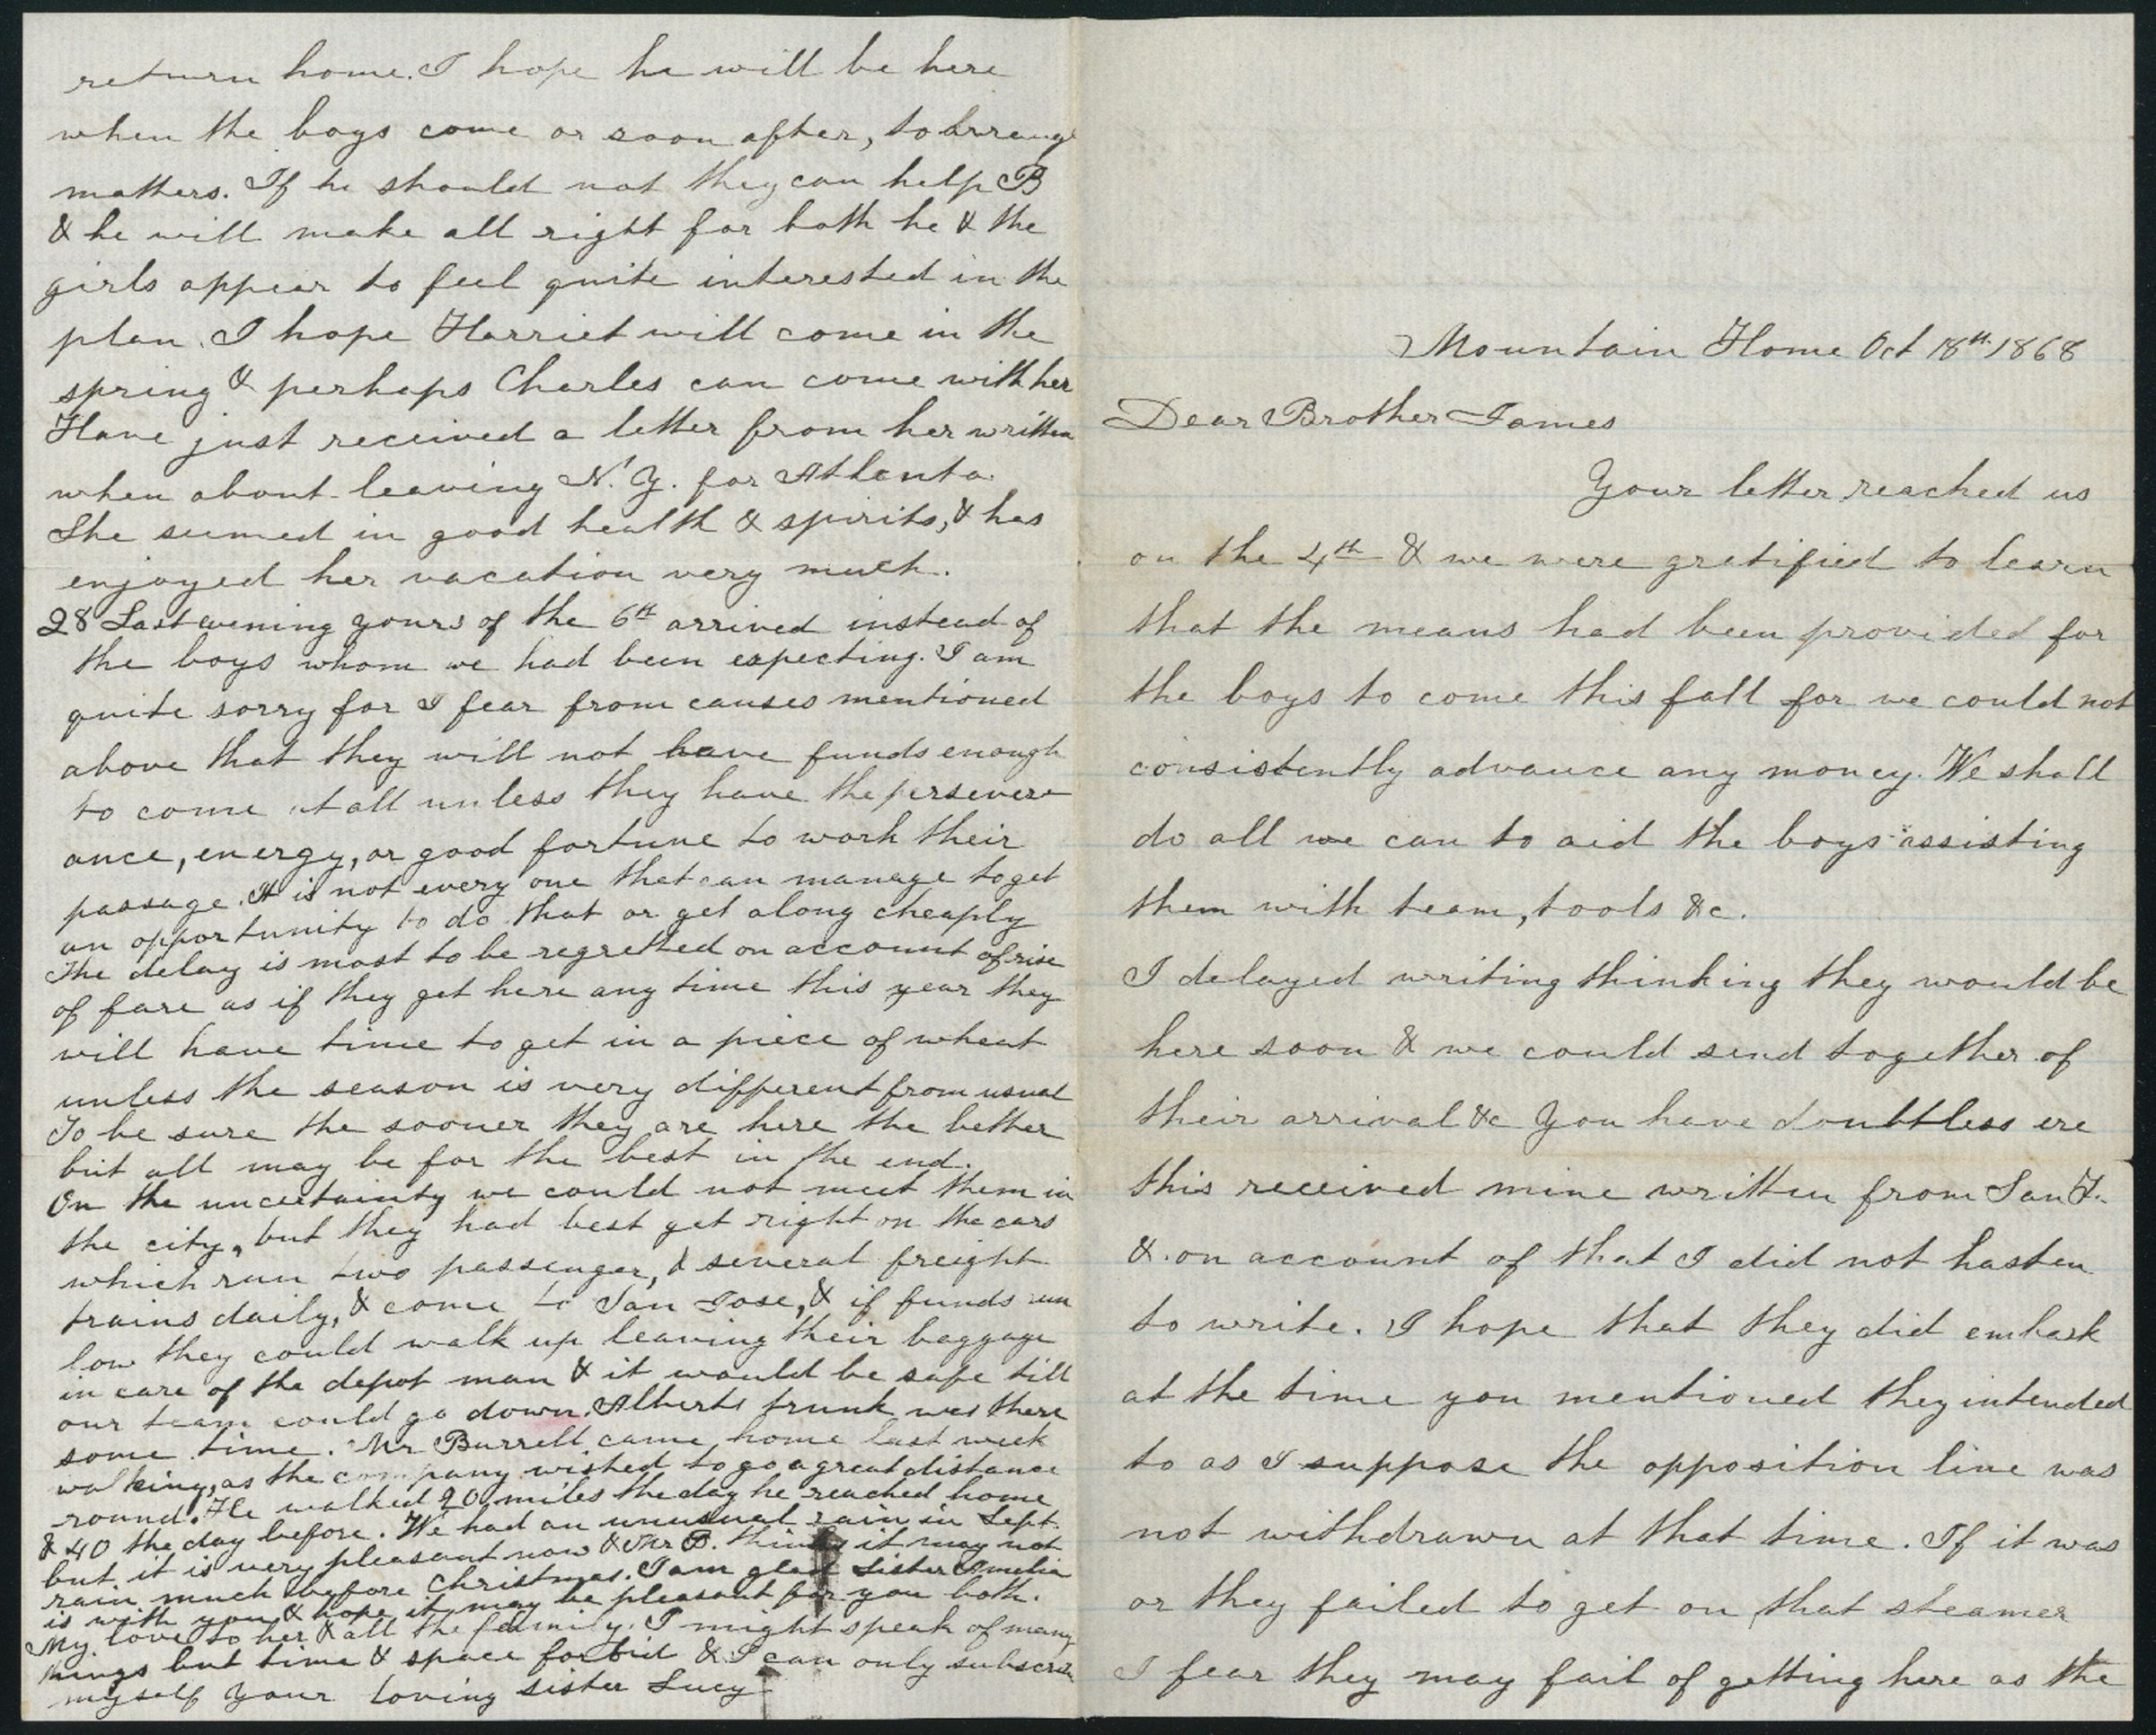 Mountain Home Oct 18th 1868
Dear Brother James
Your letter reached us
on the 4th & we were gratified to learn
that the means had been provided for
the boys to come this fall for we could not
consistently advance any money. We shall
do all we can to aid the boys assisting
them with team, tools &c.
I delayed writing thinking they would be
here soon & we could send together of
their arrival &c You have doubtless ere
this received mine written from San F.
& on account of that I did not hasten
to write. I hope that they did embark
at the time you mentioned they intended
to as I suppose the opposition line was
not withdrawn at that time. If it was
or they failed to get on that steamer
I fear they may fail of getting here as the
return home. I hope he will be here
when the boys come or soon after, to arrange
matters. If he should not they can help B
& he will make all right for both he & the
girls appear to feel quite interested in the
plan. I hope Harriet will come in the
spring & perhaps Charles can come with her
Have just received a letter from her written
when about leaving N. Y. for Atlanta.
She seemed in good health & spirits, & has
enjoyed her vacation very much.
28 Last evening yours of the 6th arrived instead of
the boys whom we had been expecting. I am
quite sorry for I fear from causes mentioned
above that they will not have funds enough
to come at all unless they have the persever-
ance, energy, or good fortune to work their
passage. It is not every one that can manage to get
an opportunity to do that or get along cheaply
The delay is most to be regretted on account of rise
of fare as if they get here any time this year they
will have time to get in a piece of wheat
unless the season is very different from usual
To be sure the sooner they are here the better
but all may be for the best in the end.
On the uncertainty we could not meet them in
the city, but they had best get right on the cars
which run two passenger, & several freight
trains daily, & come to San Jose, & if funds run
low they could walk up leaving their baggage
in care of the depot man & it would be safe till
our team could go down. Alberts trunk was there
some time. Mr Burrell came home last week
walking, as the company wished to go a great distance
round. He walked 20 miles the day he reached home
& 40 the day before. We had an unusual rain in Sept.
but it is very pleasant now & Mr B. thinks it may not
rain much before Christmas. I am glad Sister Amelia
is with you & hope it may be pleasant for you both.
My love to her & all the family. I might speak of many
things but time & space forbid & I can only subscribe
myself your loving sister Lucy